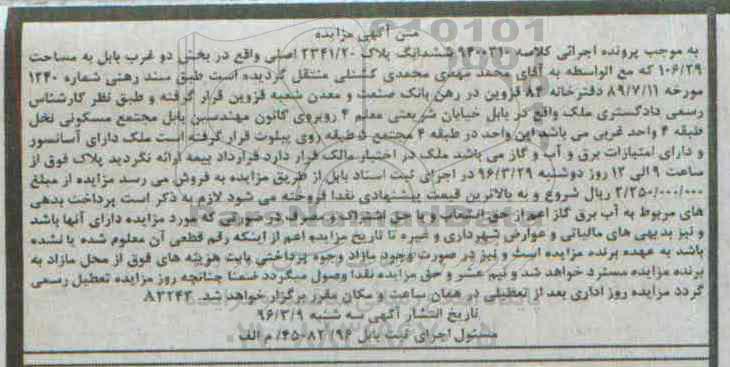 متن آگهی مزایده
به موجب پرونده اجرائی کلاسه ۹۴۰۰۳۱۰ ششدانگ پلاک ۲۳۴۱/۲۰ اصلی واقع در بخش دو غرب بابل به مساحت
۱۰۶/۲۹ که مع الواسطه به آقای محمد مهدی محمدی کشتلی منتقل گردیده است طبق سند رهنی شماره ۱۲۴۰
مورخه ۸۹/۷/۱۱ دفترخانه ۸۴ قزوین در رهن بانک صنعت و معدن شعبه قزوین قرار گرفته و طبق نظر کارشناس
رسمی دادگستری ملک واقع در بابل خیابان شریعتی معلم ۴ روبروی کانون مهندسین بابل مجتمع مسکونی نخل
طبقه ۴ واحد غربی می باشد این واحد در طبقه ۴ مجتمع ۵ طبقه روی پیلوت قرار گرفته است ملک دارای آسانسور
و دارای امتیازات برق و آب و گاز می باشد ملک در اختیار مالک قرار دارد قرارداد بیمه ارائه نگردید پلاک فوق از
ساعت ۹ الی ۱۲ روز دوشنبه ۹۶/۳/۲۹ در اجرای ثبت اسناد بابل از طریق مزایده به فروش می رسد مزایده از مبلغ
۲/۲۵۰/۰۰۰/۰۰۰ ریال شروع و به بالاترین قیمت پیشنهادی نقدا فروخته می شود لازم به ذکر است پرداخت بدهی
های مربوط به آب برق گاز اعم از حق انشعاب و یا حق اشتراک و مصرف در صورتی که مورد مزایده دارای آنها باشد
و نیز بدیهی های مالیاتی و عوارض شهرداری و غیره تا تاریخ مزایده اعم از اینکه رقم قطعی آن معلوم شده یا نشده
باشد به عهده برنده مزایده است و نیز در صورت وجود مازاد وجوه پرداختی بابت هزینه های فوق از محل مازاد به
برنده مزایده مسترد خواهد شد و نیم عشر و حق مزایده نقدا وصول میگردد ضمنا چنانچه روز مزایده تعطیل رسمی
گردد مزایده روز اداری بعد از تعطیلی در همان ساعت و مکان مقرر برگزار خواهد شد. ۸۳۲۴۳
تاریخ انتشار آگهی سه شنبه ۹۶/۳/۹
مسئول اجرای ثبت بابل ۹۶/۴۵۰۸۲/ م الف